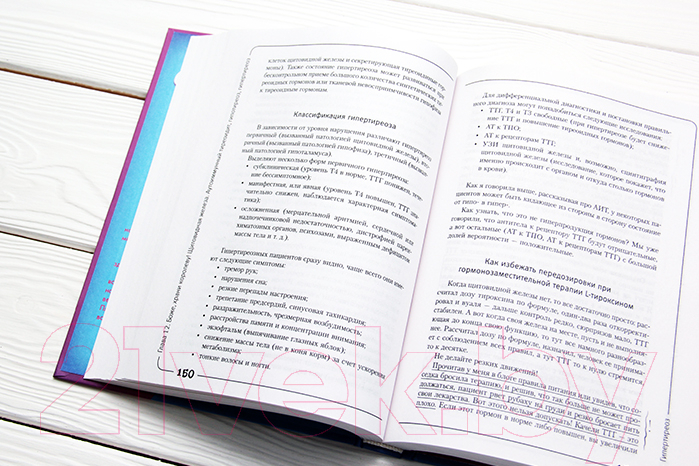 клеток щитовидной железы и секретирующая тиреоидные гор-
моны). Также состояние гипертиреоза может развиваться при
бесконтрольном приеме большого количества синтетических ти-
реоидных гормонов или тканевой невосприимчивости гипофиза
к тиреоидным гормонам.
Классификация гипертиреоза
В зависимости от уровня нарушения различают гипертиреоз
первичный (вызванный патологией щитовидной железы), вто-
ричный (вызванный патологией гипофиза), третичный (вызван-
ный патологией гипоталамуса).
Выделяют несколько форм первичного гипертиреоза:
• субклиническая (уровень Т4 в норме, ТТГ понижен, тече-
ние бессимптомное);
• манифестная, или явная (уровень Т4 повышен, ТТГ зна-
чительно снижен, наблюдается характерная симптома-
тика);
• осложненная (мерцательной аритмией, сердечной или
надпочечниковой недостаточностью, дистрофией парен-
химатозных органов, психозами, выраженным дефицитом
массы тела и т. д.).
Гипертиреозных пациентов сразу видно, чаще всего они име-
ют следующие симптомы:
• тремор рук;
• нарушения сна;
• резкие перепады настроения;
• трепетание предсердий, синусовая тахикардия;
• раздражительность, чрезмерная возбудимость;
• расстройства памяти и концентрации внимания;
• экзофтальм (выпячивание глазных яблок);
• снижение массы тела (не в коня корм) за счет ускорения
метаболизма;
• тонкие волосы и ногти.
Глава 17. Боже, храни королеву! Щитовидная железа. Аутоиммунный тиреоидит, гипотиреоз, гипертиреоз
150
Для дифференциальной диагностики и постановки правиль-
ного диагноза могут понадобиться следующие исследования:
• ТТГ, Т4 и Т3 свободные (при гипертиреозе будет сниже-
ние ТТГ и повышение тиреоидных гормонов).
• АТ к ТПО;
• АТ к рецепторам ТТГ;
• УЗИ щитовидной железы и, возможно, сцинтиграфия
щитовидной железы (исследование, которое покажет, что
именно происходит с органом и откуда столько гормонов
в крови).
Как я говорила выше, рассказывая про АИТ, у некоторых па-
циентов может быть кидающее из стороны в сторону состояние
от гипо- в гипер-.
Как узнать, что это не гиперпродукция гормонов? Мы уже
говорили, что антитела к рецептору ТТГ будут отрицательные,
а вот остальные (АТ к ТПО, АТ к рецепторам ТТГ) с большой
долей вероятности — положительные.
Как избежать передозировки при
гормонозаместительной терапии L-тироксином
Когда щитовидной железы нет, то все достаточно просто; рас-
считал дозу тироксина по формуле, один-два раза откорректи-
ровал и вуаля — дальше контроль раз в полгода, ведь ТТГ очень
стабилен. А вот когда своя железа на месте, пусть и не выполня-
ющая до конца свою функцию, то тут все намного разнообраз-
нее. Рассчитал дозу по формуле, намотивировал
с соблюдением всех правил, а тут ТТГ то к нулю стремится,
то к десятке.
Не делайте резких движений!
Прочитав у меня в блоге правила питания или увидев, что со-
седка бросила терапию, и решив, что так больше не может про-
должаться, пациент рвет рубаху на груди и резко бросает пить
свои лекарства. Вот этого нельзя допускать! Качели ТТГ — это
плохо. Если этот гормон в норме либо повышен, вы увеличили
Гипертиреоз
21vek.by